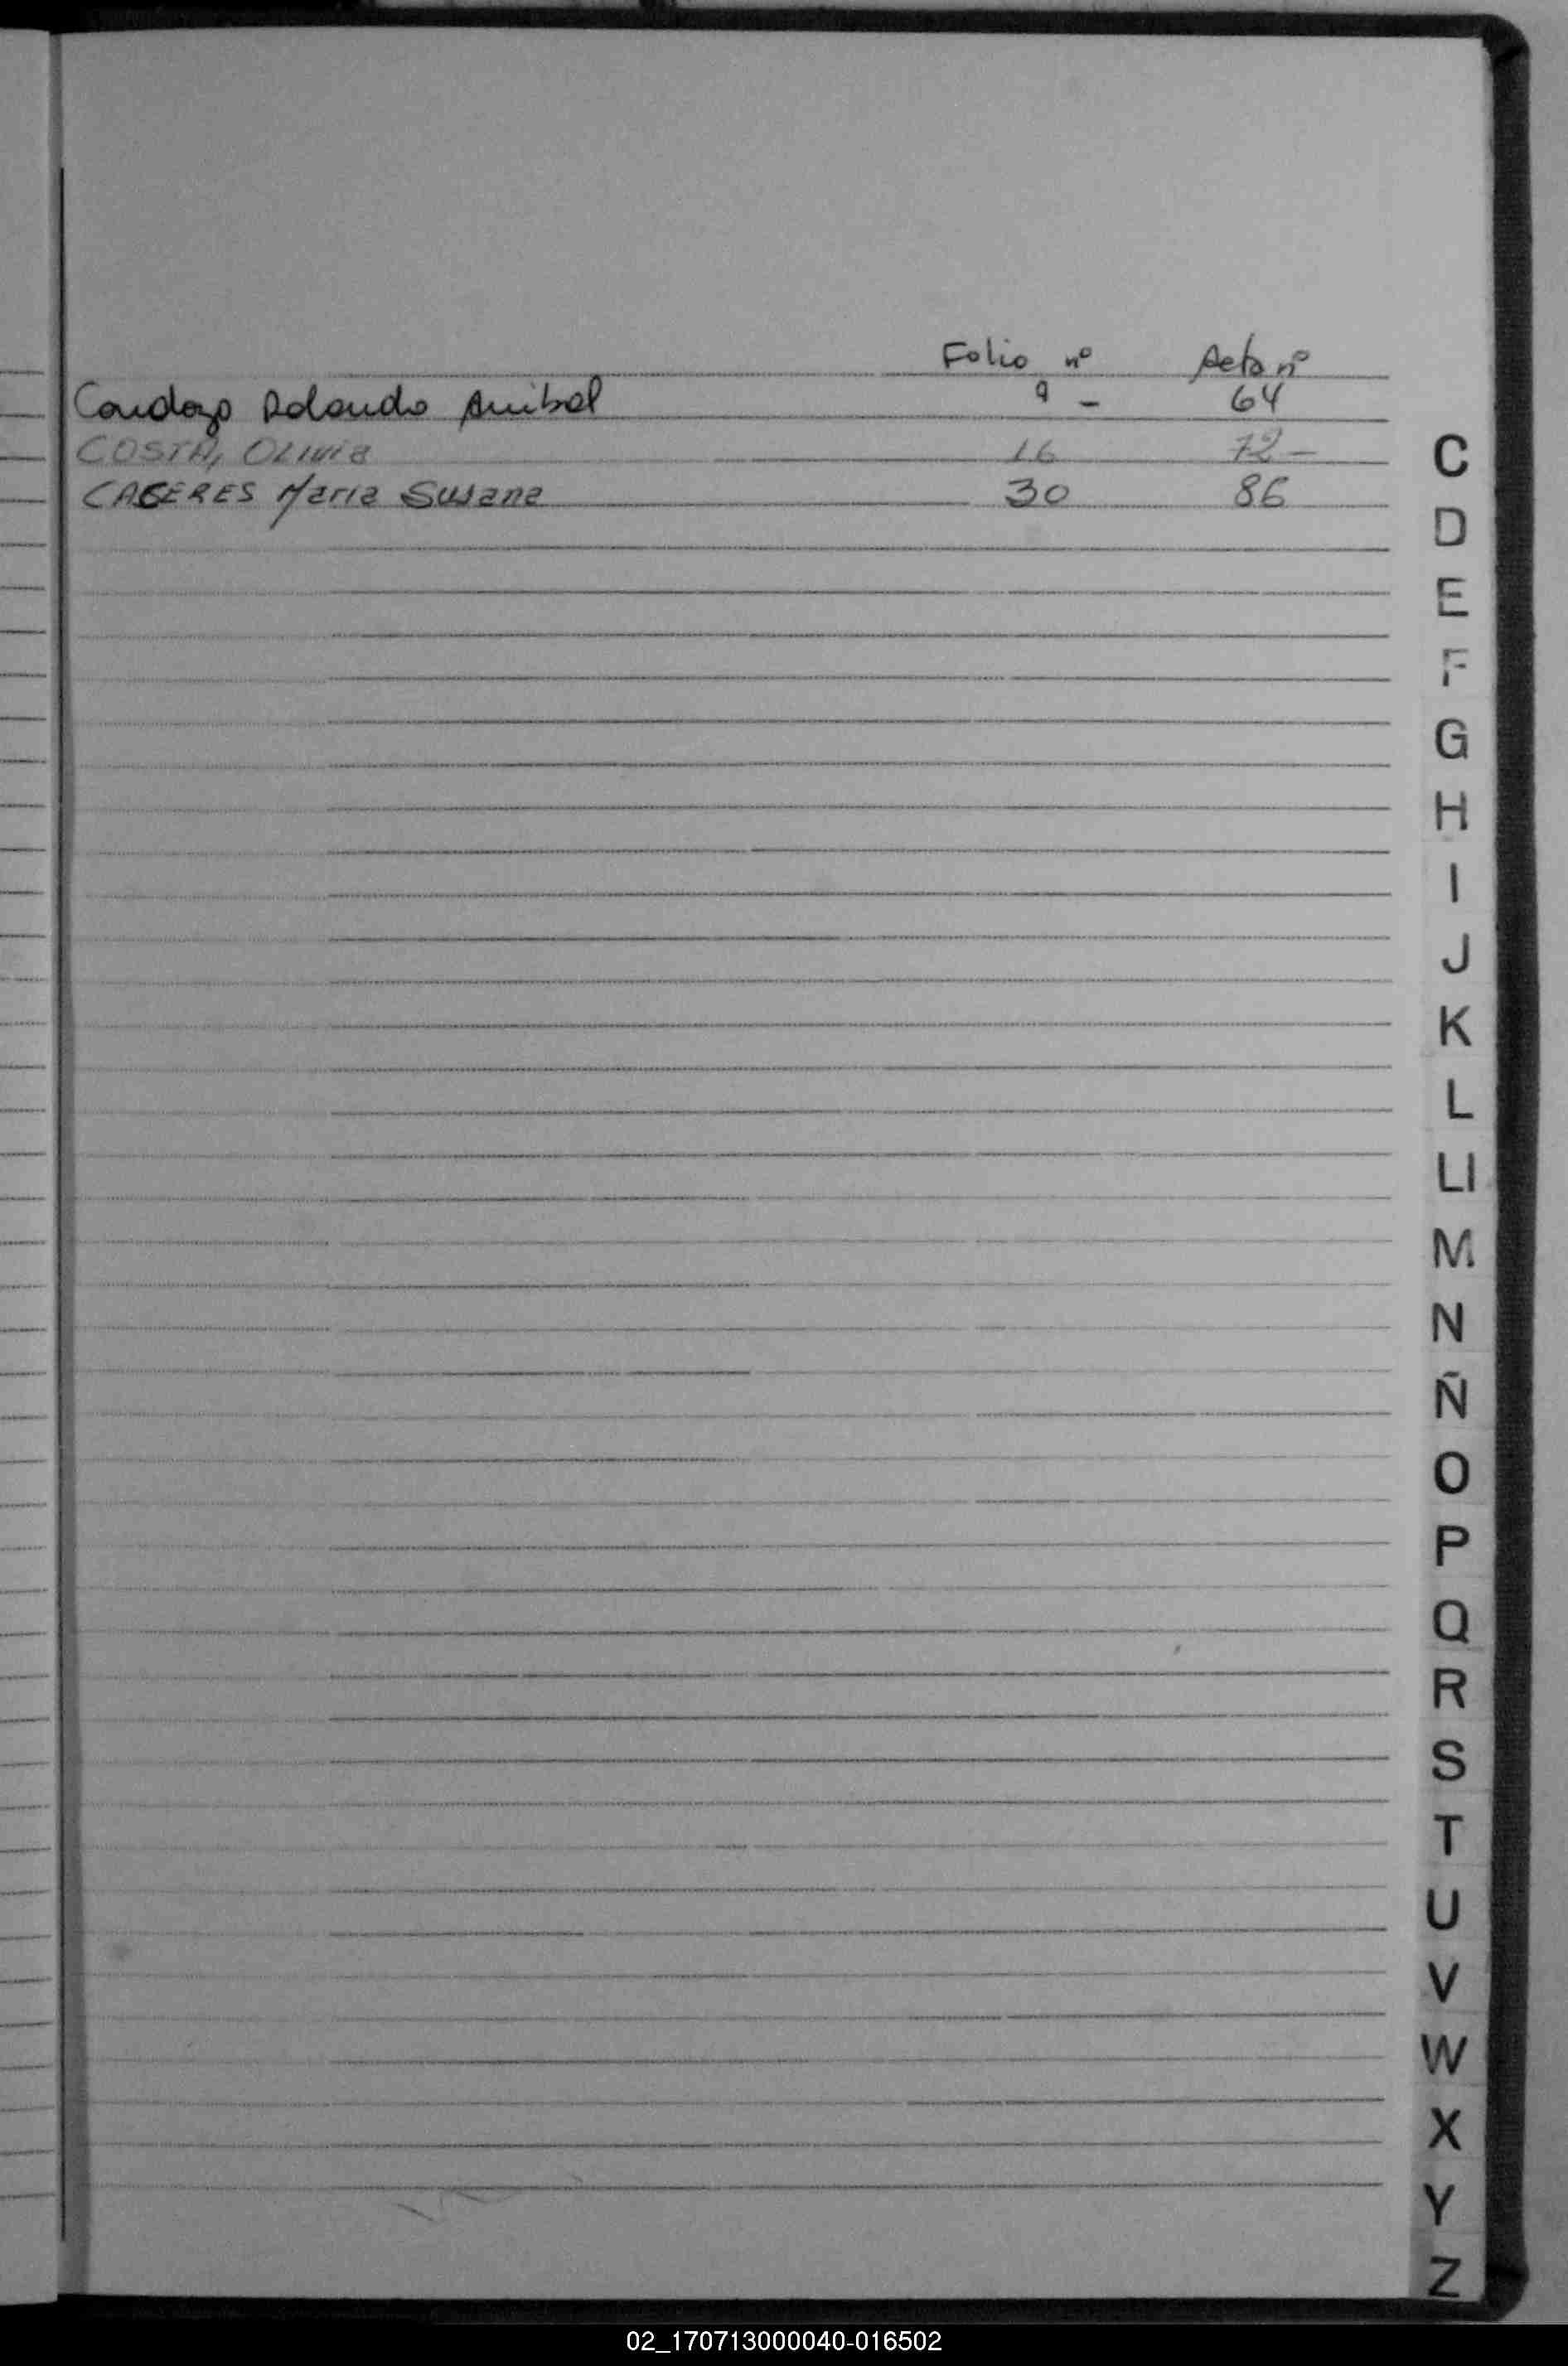 Folio nº Acta nº
Cardozo Rolando Anibal 9 - 64
COSTA, OLIVIA 16 72 -
CACERES Maria Susana 30 86
C
D
E
F
G
H
I
J
K
L
Ll
M
N
Ñ
O
P
Q
R
S
T
U
V
W
X
Y
Z
02_170713000040-016502